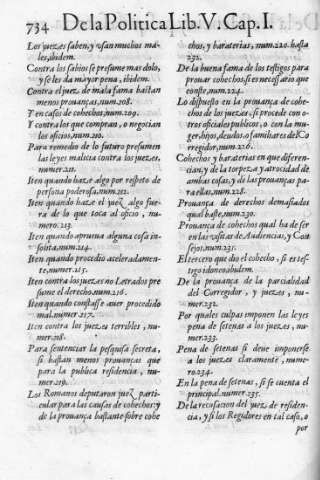 734 De la Politica Lib. V. Cap. I.
Los juezes saben, y usan muchos ma-
les, ibidem.
Contra los sabios se presume mas dolo,
y se les da mayor pena, ibidem.
Contra el juez de mala fama bastan
menos provanças, num. 208.
Y en casos de cohechos, num. 209.
Y contra los que compran, o negocian
los oficios, num. 210.
Para remedio de lo futuro presumen
las leyes malicia contra los juezes,
numer. 211.
Iten quando haze algo por respeto de
persona poderosa, num. 212.
Iten quando haze el juez algo fue-
ra de lo que toca al oficio, nu-
mero. 213.
Iten quando aprueva alguna cosa in-
solita, num. 214.
Iten quando procedio aceleradamen-
te, numer. 215.
Iten contra los juezes no Letrados pre
sume el derecho, num. 216.
Iten quando constasse aver procedido
mal, numer. 217.
Iten contra los juezes terribles, nu-
mer. 218.
Para sentenciar la pesquisa secreta,
si bastan menos provanças que
para la publica residencia, nu-
mer. 219.
Los Romanos deputaron juez parti-
cular para las causas de cohechos: y
de la provança bastante sobre cohe
chos, y baraterias, num. 220. hasta
232.
De la buena fama de los testigos para
provar cohechos, si es necessario que
conste, num. 224.
Lo dispuesto en la provança de cohe-
chos de los juezes, si procede con o-
tros oficiales publicos, o con la mu-
ger, hijos, deudos, o familiares del Co
rregidor, num. 226.
Cohechos y baraterias en que diferen-
cian, y de la torpeza y atrocidad de
ambas cosas, y de las provanças pa-
ra ellas, num. 228.
Provança de derechos demasiados
qual baste, num. 230.
Provança de cohechos qual ha de ser
en las visitas de Audiencias, y Con
sejos, num. 231.
El tercero que dio el cohecho, si es tes-
tigo idoneo, ibidem.
De la provança de la parcialidad
del Corregidor, y juezes, nu-
mer. 232.
Por quales culpas imponen las leyes
pena de setenas a los juezes, nu-
mer. 233.
Pena de setenas si deve imponerse
a los juezes claramente, nume-
ro. 234.
En la pena de setenas, si se cuenta el
principal, numer. 235.
De la recusacion del juez de residen-
cia, y si los Regidores en tal caso, o
por